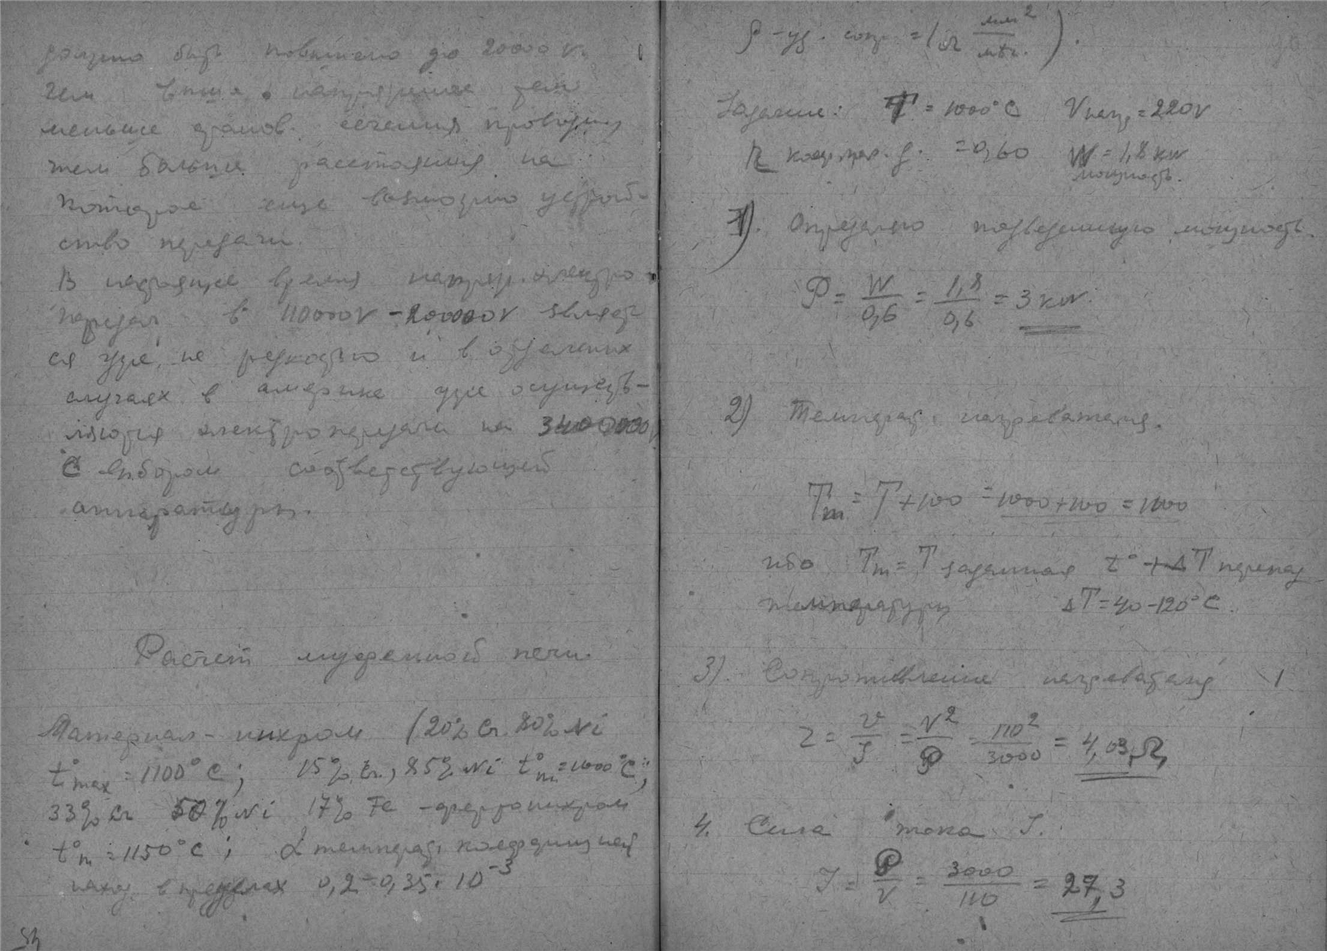 должно быть повышено до 20000 v.
Чем выше напряжение тем
меньше сечения
тем больше расстояния на
которое еще возможно устрой-
ство передачи.
В настоящее время напряж. электро-
передач в 110000v - 200000v являет
ся уже не редкостью и в отдельных
случаях в америке уже осущест-
вляются электропередачи на
с выбором соответствующей
аппаратуры.
Расчет муфельной печи.
Материал - нихром (20% Cr 80% Ni
t°max = 1100°C; 15% Cr, 85% Ni t°m = 1000°C;
33% Cr 50% Ni 17% Fe - ферронихром
t°m = 1150°C; α температ. коеффициент
наход. в пределах 0,2 - 0,35 · 10⁻³
ρ - уд. сопр. = (Ω мм²/мт.).
Задание: T = 1000°C Vнапр = 220v
= 0,60 W = 1,8 kw
мощность.
1). Определяю подведенную мощность.
P = W/0,6 = 1,8/0,6 = 3 kw.
2) Температ. нагревателя.
Tm = T + 100 = 1000 + 100 = 1100
ибо Tm = T заданная t° + ΔT перепад
температуры ΔT = 40 - 120°C.
3). Сопротивление нагревателя
r = v/J = V²/P = 110²/3000 = 4,03 Ω
4. Сила тока J.
J = P/V = 3000/110 = 27,3